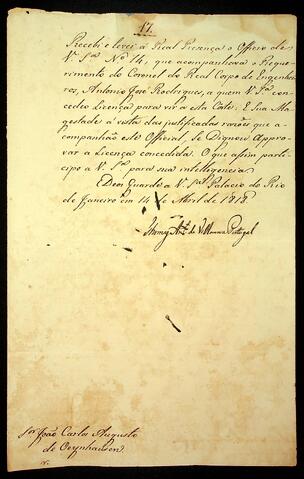 17.
Recebi e levei á Real Presença o Officio de
V. Sª Nº 14, que acompanhava o Reque-
rimento do Coronel do Real Corpo de Engenhei-
ros, Antonio José Rodrigues, a quem V. Sª con-
cedeo Licença para vir a esta Côrte. E Sua Ma-
gestade á vista das justificadas razões que a-
companhão este Official, Se Dignou Appro-
var a Licença concedida. O que assim parti-
cipo a V. Sª para sua intelligencia.
Deos Guarde a V. Sª Palacio do Rio
de Janeiro em 14 de Abril de 1818.
Thomaz Antº de Villanova Portugal
Snr João Carlos Augusto
de Oeynhausen.